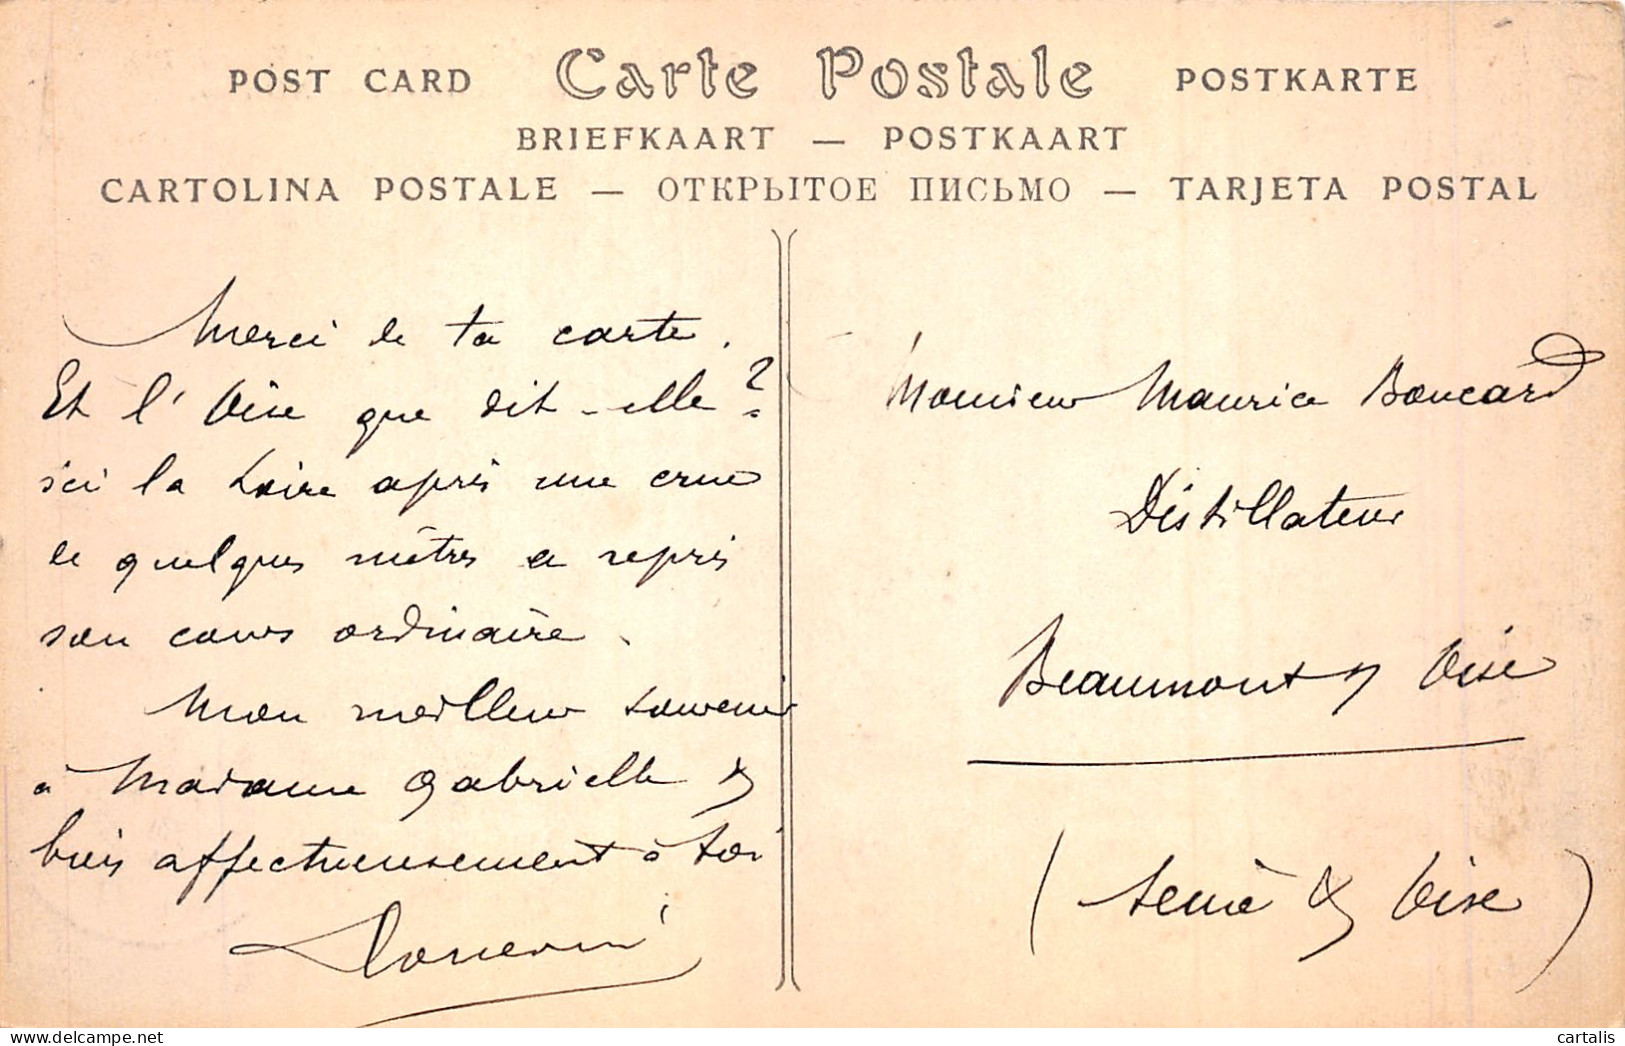 POST CARD Carte Postale POSTKARTE
BRIEFKAART — POSTKAART
CARTOLINA POSTALE — ОТКРЫТОЕ ПИСЬМО — TARJETA POSTAL
Merci de ta carte.
Et l'Oise que dit-elle?
ici la Loire après une crue
de quelques mètres a repris
son cours ordinaire.
Mon meilleur souvenir
à Madame Gabrielle &
bien affectueusement à toi
Monsieur Maurice Boucard
Distillateur
Beaumont s/ Oise
(Seine & Oise)
cartalis